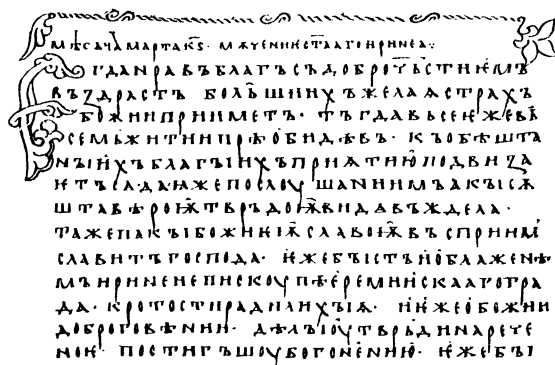 мѣсѧца марта кѕ · мѫчениѥ ст҃ааго иринеа ·:
Ѥгда нравъ благъ съ доброч҃ьстиѥмъ
въздрастъ большиихъ желаѧ страхъ
божии прииметъ · тъгда вьсе ѥже въ
семь житии прѣобидѣвъ · къ обѣшта
ныихъ благыихъ приѧтию подвиза
ѥтъ сѧ · да ꙗже послоушаниимъ акы сѫ
шта вѣроѭ тврьдоѭ видѧ въждела ·
та же пакы божиѥѭ славоѭ въсприимъ
славитъ господа · ѥже быстъ и о блаженѣ
мъ иринеи епискоупѣ серемиискааго гра
да · кротости ради лихыѧ · и ѥже о божии
доброговѣнии · дѣлы оутврьди нарече
ноѥ · постигъшоу бо гонению · ѥже бы